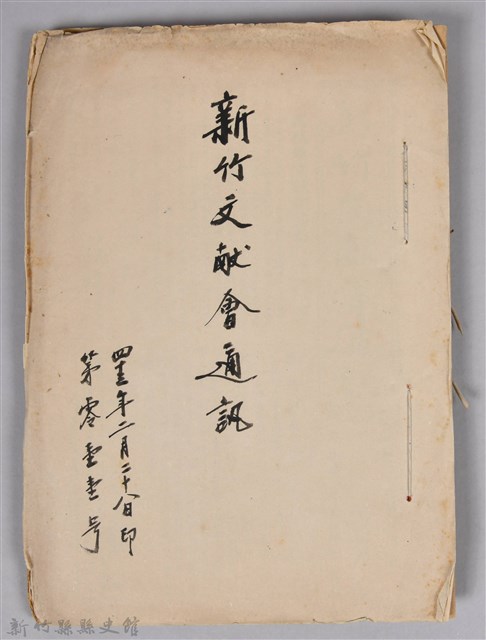 新竹文献會通訊
四十三年二月二十八日印
第零壹壹号
新竹縣縣史館